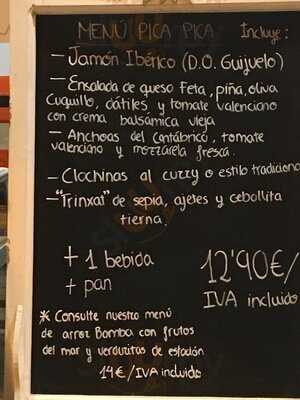 MENÚ PICA PICA Incluye:
- Jamón Ibérico (D.O. Guijuelo)
- Ensalada de queso Feta, piña, oliva
Cuquillo, dátiles y tomate valenciano
con crema balsámica vieja
- Anchoas del Cantábrico, tomate
valenciano y mozzarela fresca.
- Clochinas al curry o estilo tradiciona
- "Trinxat" de sepia, ajetes y cebollita
tierna.
+ 1 bebida
+ pan
12'90€/
IVA incluido
* Consulte nuestro menú
de arroz Bomba con frutos
del mar y verduritas de estación
14€/IVA incluido